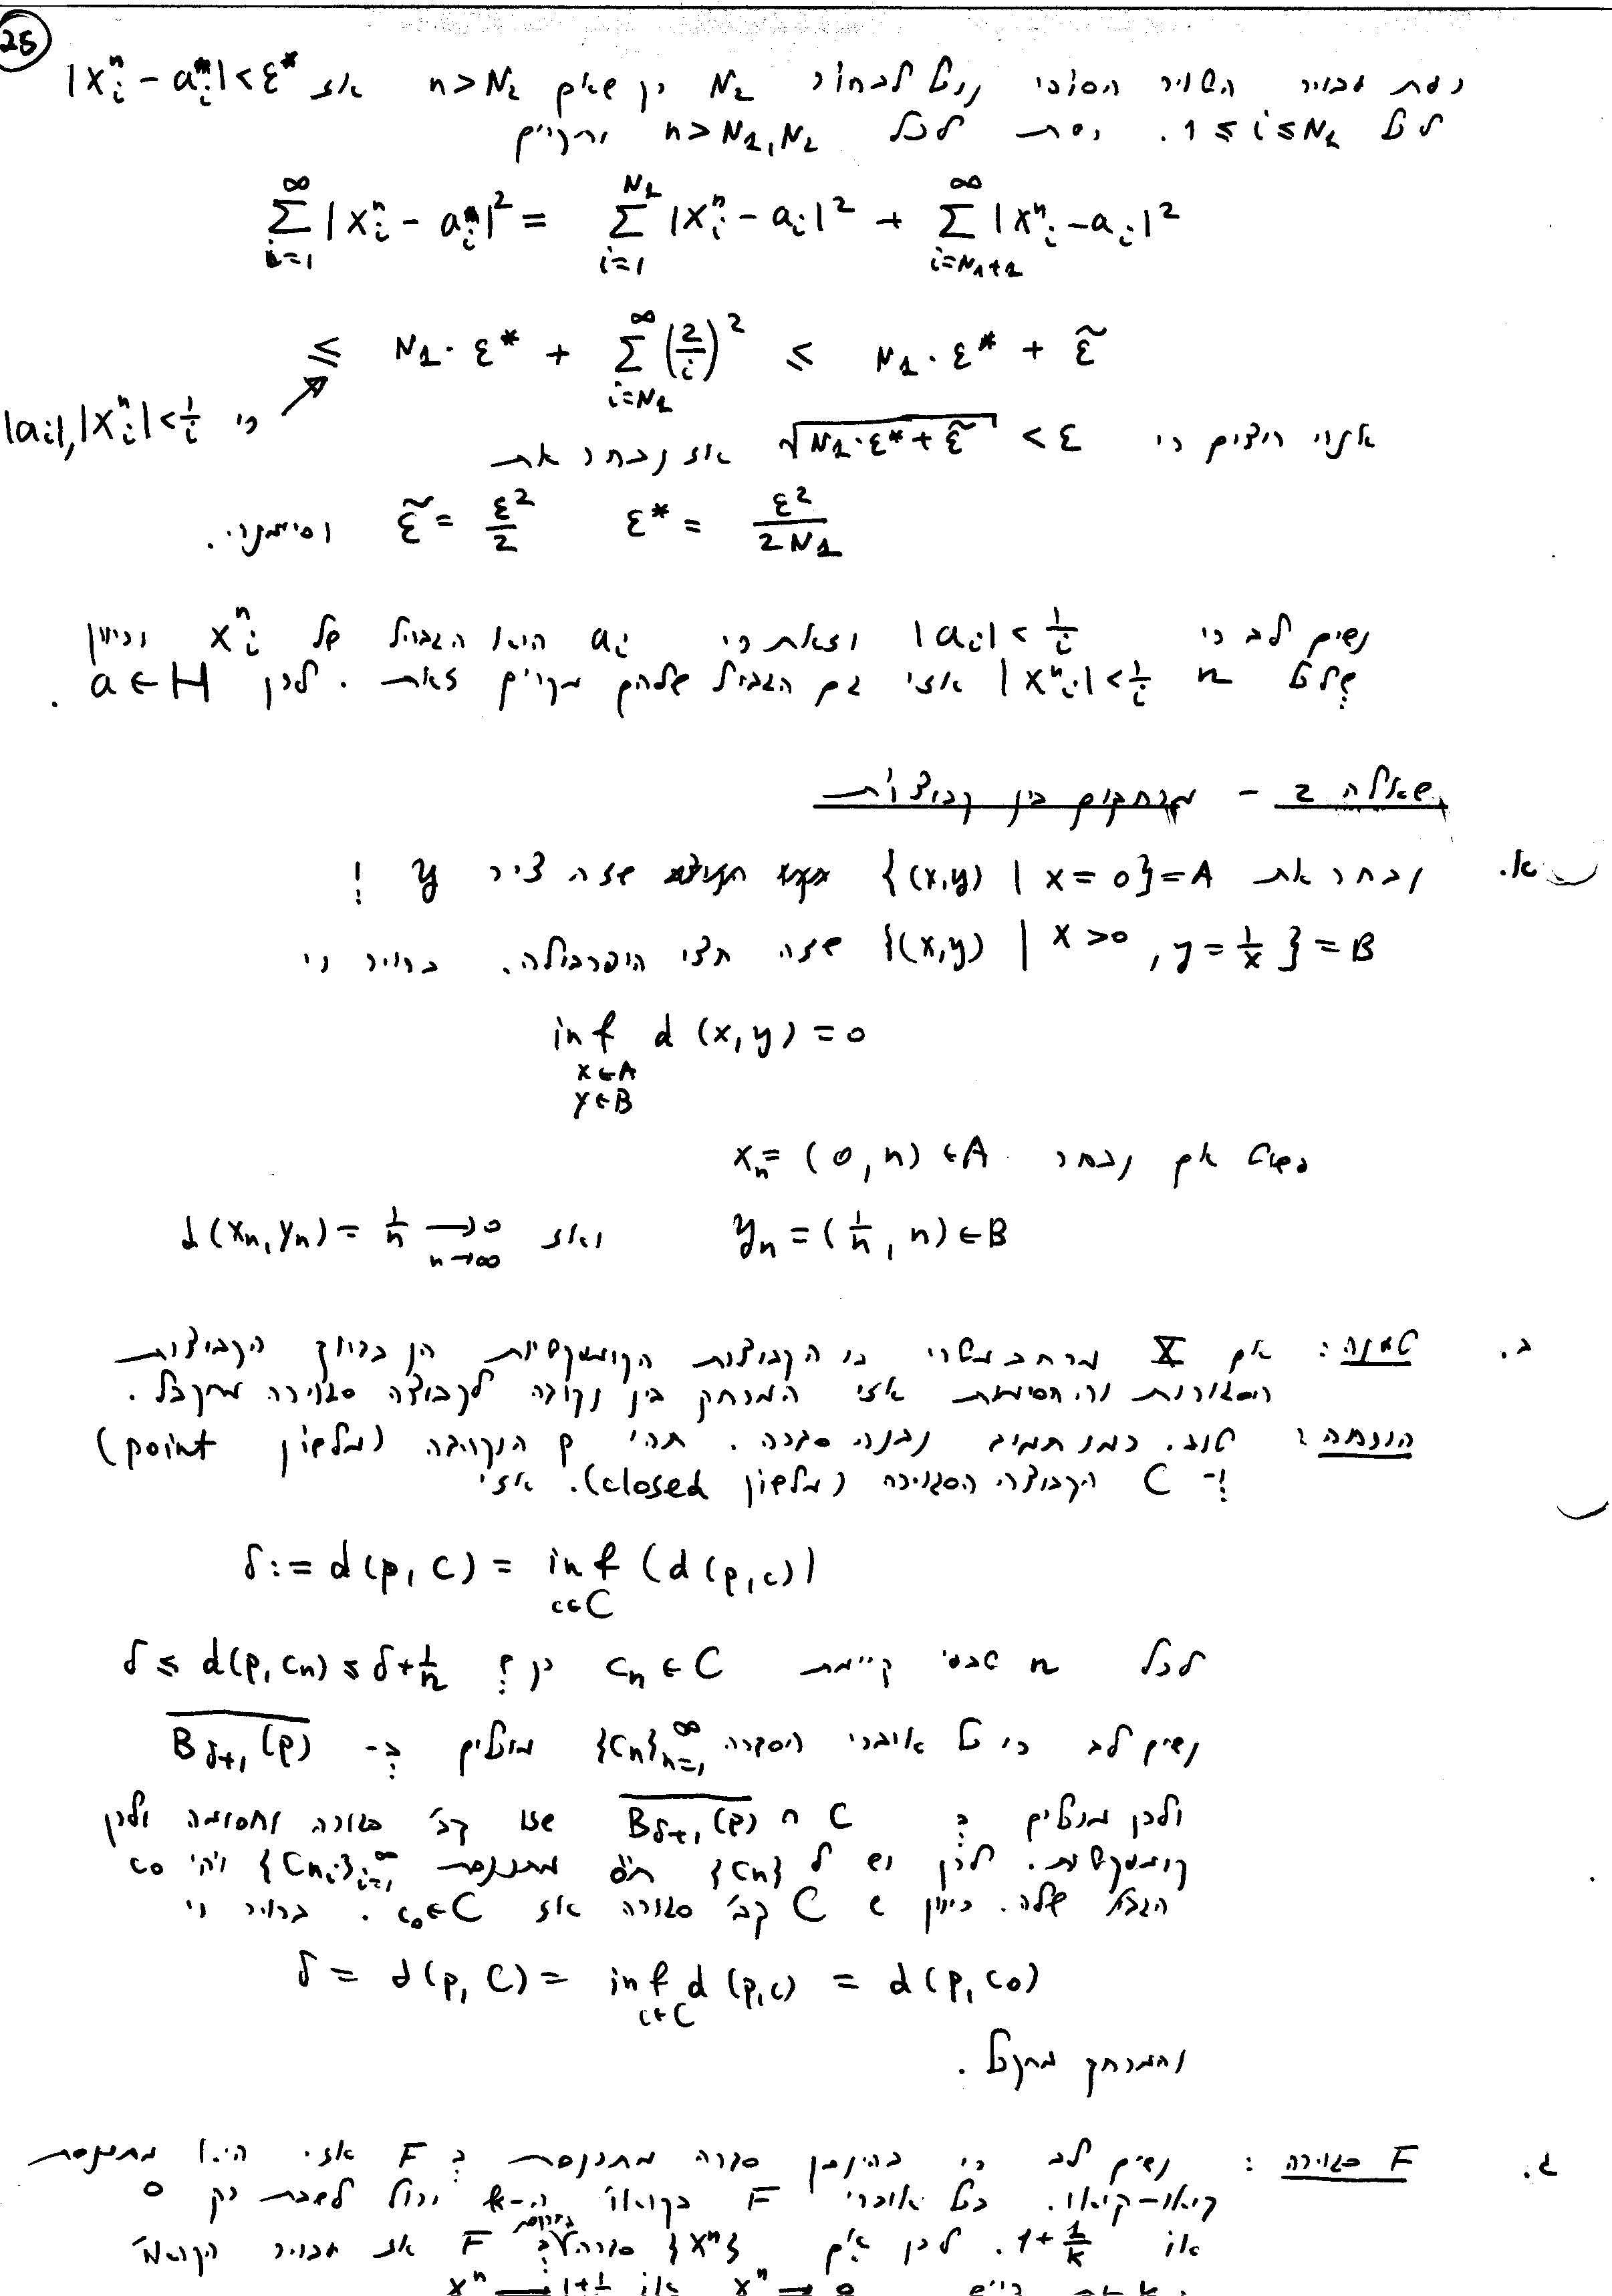 25
כעת עבור השוויון הסופי נוכל לבחור N₂ כך שאם n>N₂ אז |x_i^n - a_i|<ε*
לכל 1 ≤ i ≤ N₁. כעת לכל n>N₁,N₂ יתקיים
\sum_{i=1}^{∞} |x_i^n - a_i|² = \sum_{i=1}^{N₁} |x_i^n - a_i|² + \sum_{i=N₁+1}^{∞} |x_i^n - a_i|²
≤ N₁·ε* + \sum_{i=N₁}^{∞} (2/i)² ≤ N₁·ε* + ε̃
כי |a_i|,|x_i^n|<1/i
אנחנו רוצים כי √(N₁·ε*+ε̃) < ε אז נבחר את
ε* = ε²/2N₁ ε̃ = ε²/2 וסיימנו.
נשים לב כי |a_i|<1/i וזאת כי a_i הוא הגבול של x_i^n וכיוון
שלכל n |x_i^n|<1/i אזי גם הגבול שלהם מקיים זאת. לכן a∈H.
שאלה 2 - מרחקים בין קבוצות
א. נבחר את {(x,y) | x=0}=A שזה ציר y ו
{(x,y) | x>0, y=1/x}=B שזה חצי היפרבולה. ברור כי
inf d(x,y)=0
x∈A
y∈B
פשוט אם נבחר x_n=(0,n)∈A
y_n=(1/n, n)∈B ואז d(x_n,y_n)=1/n →0 n→∞
ב. טענה: אם X מרחב מטרי בו הקבוצות הקומפקטיות הן בדיוק הקבוצות
הסגורות והחסומות אזי המרחק בין נקודה לקבוצה סגורה מתקבל.
הוכחה: טוב. כמו תמיד נבנה סדרה. תהי p הנקודה (מלשון point)
ו- C הקבוצה הסגורה (מלשון closed). אזי
δ:=d(p,C)= inf (d(p,c))
c∈C
לכל n טבעי קיימת c_n∈C כך ש δ≤d(p,c_n)≤δ+1/n
נשים לב כי כל איברי הסדרה {c_n}_{n=1}^∞ מוכלים ב- \overline{B_{δ+1}(p)}
ולכן מוכלים ב \overline{B_{δ+1}(p)} ∩ C שזו קב' סגורה וחסומה ולכן
קומפקטית. לכן יש ל {c_n} ת"ס מתכנסת {c_{n_i}}_{i=1}^∞ ויהי c₀
הגבול שלה. כיוון ש C קב' סגורה אז c₀∈C. ברור כי
δ = d(p,C)= inf d(p,c) = d(p,c₀)
c∈C
והמרחק מתקבל.
ג. F סגורה: נשים לב כי בהינתן סדרה מתכנסת ב F אזי היא מתכנסת
קואו-קואו. כל איברי F בקואו' ה-k יכול לשבת רק 0
או 1+1/k. לכן אם {x^n} סדרה מתכנסת ב F אז עבור הקואו'
x^n → 1+1 או x^n → 0